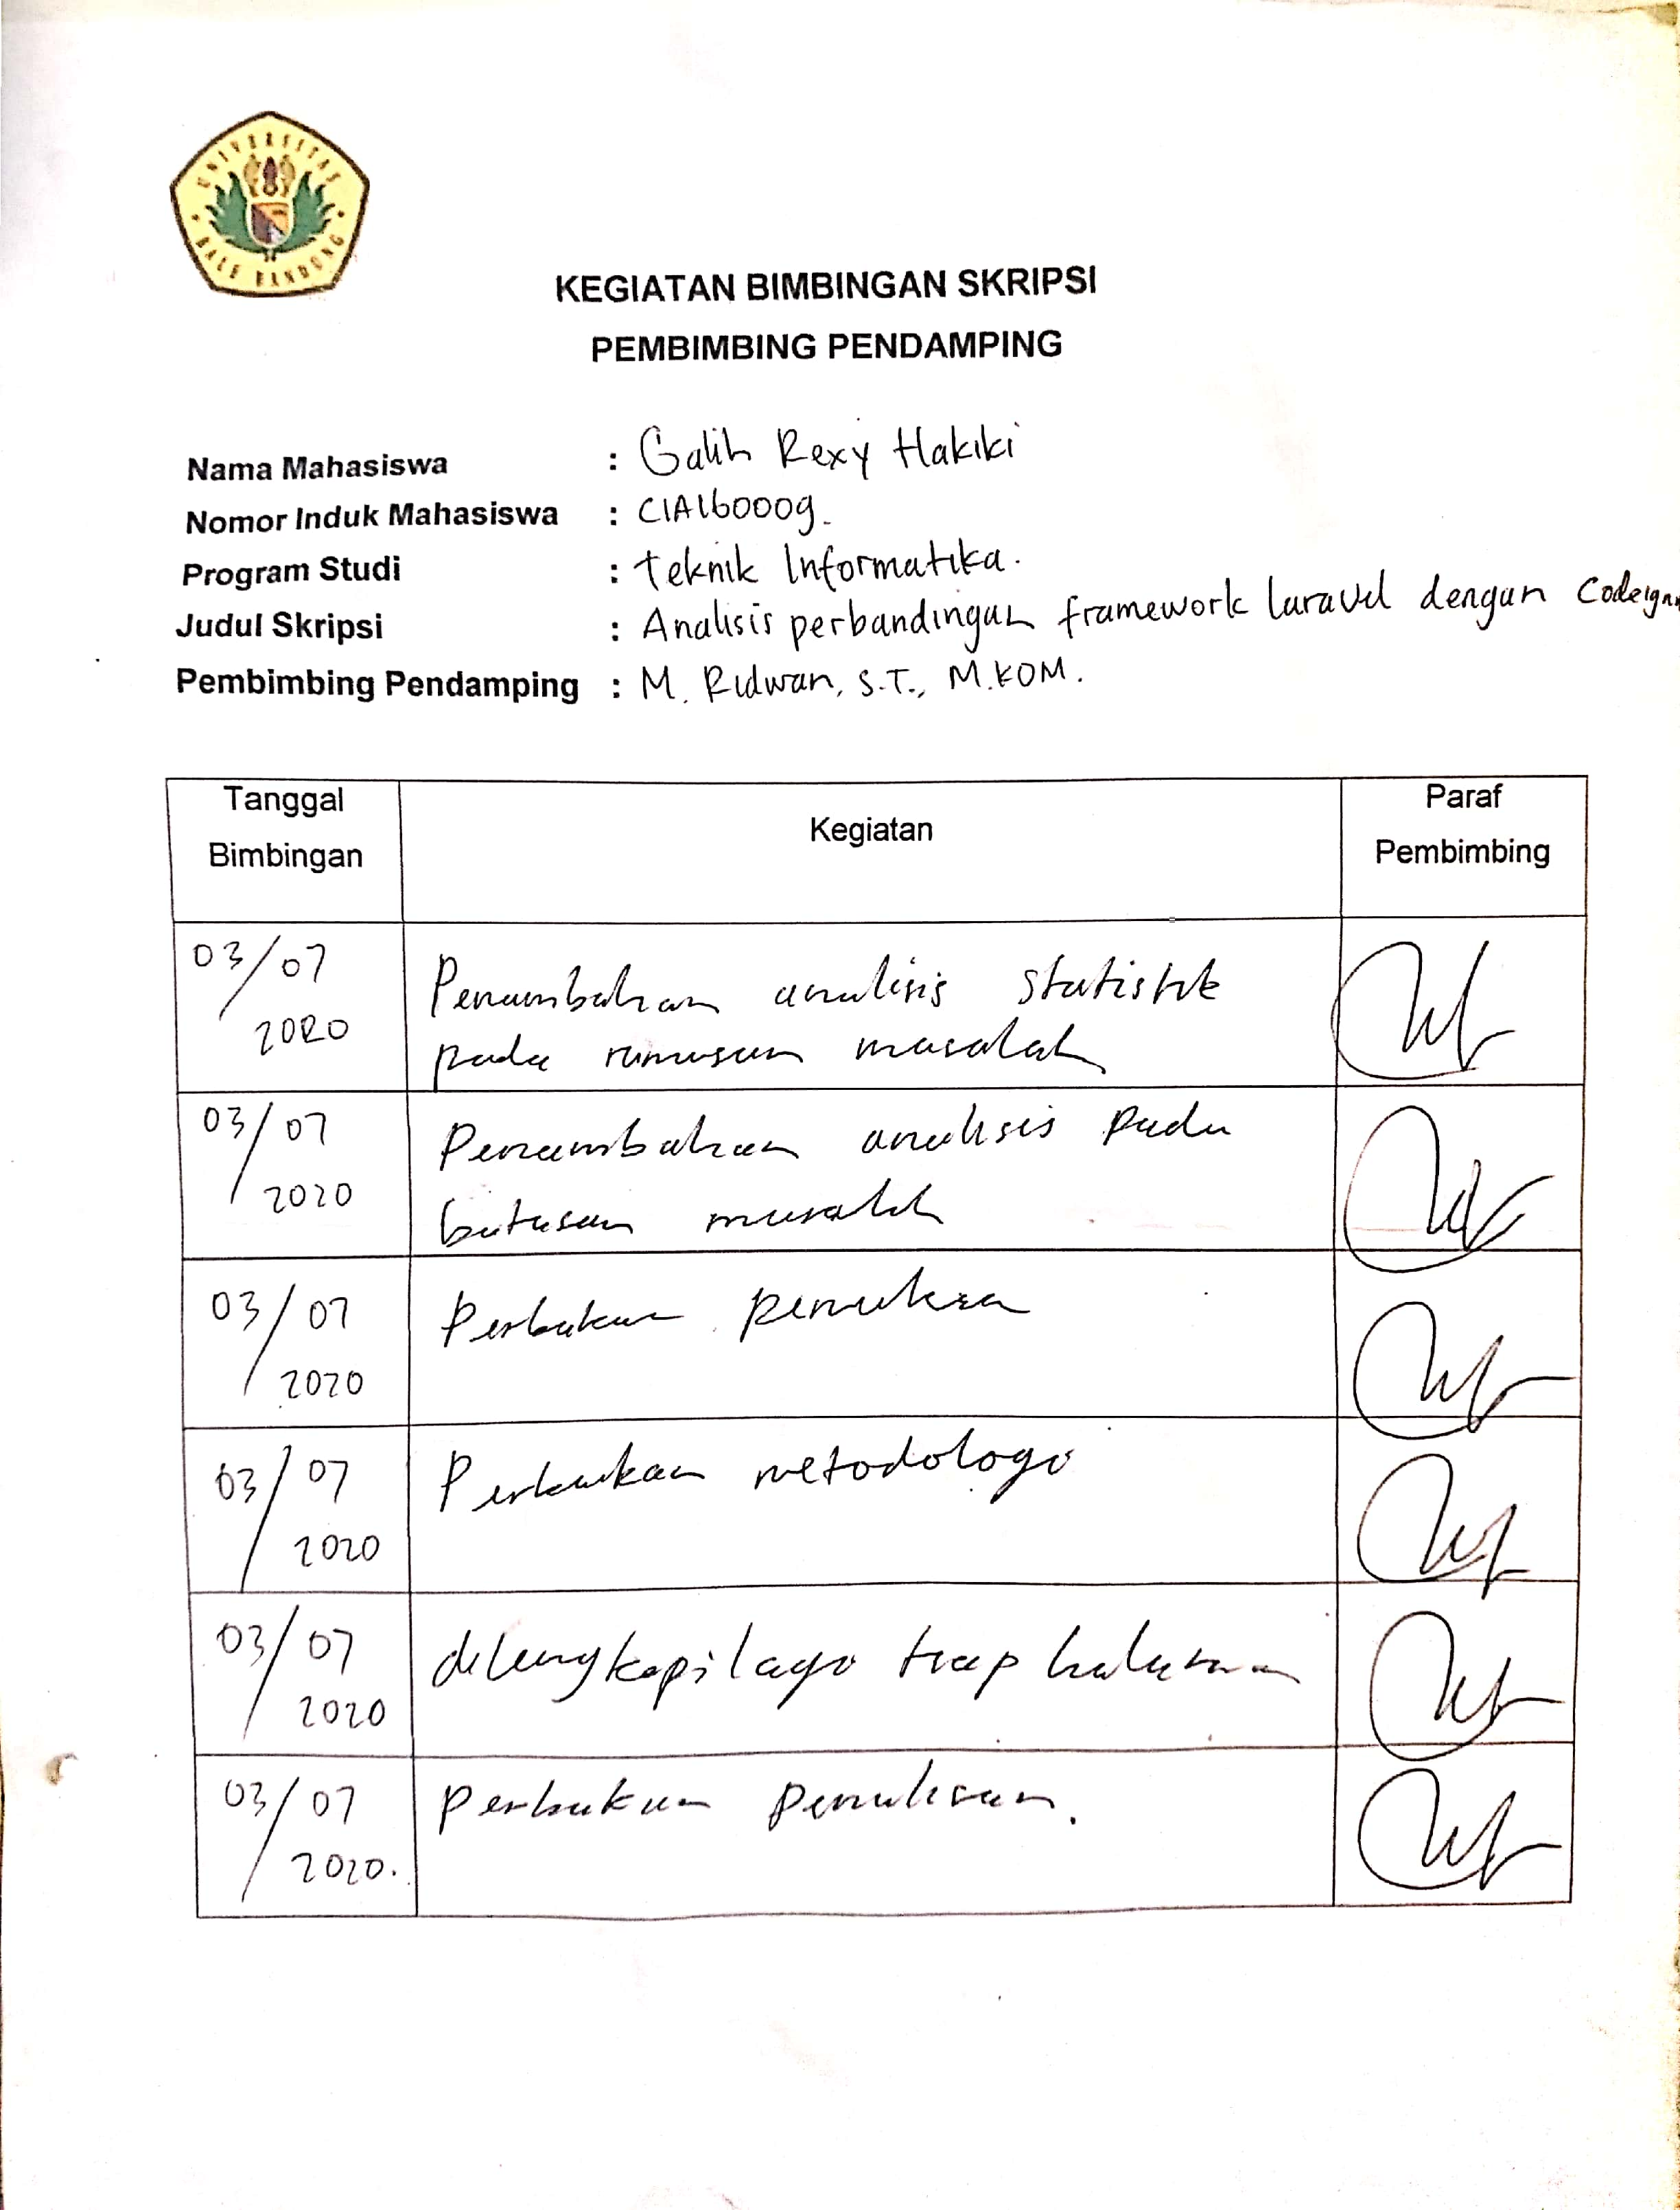 UNIVERSITAS
BALE BANDUNG
KEGIATAN BIMBINGAN SKRIPSI
PEMBIMBING PENDAMPING
Nama Mahasiswa : Galih Rexy Hakiki
Nomor Induk Mahasiswa : C1A160009
Program Studi : Teknik Informatika.
Judul Skripsi : Analisis perbandingan framework laravel dengan Codeign
Pembimbing Pendamping : M. Ridwan, S.T., M.KOM.
Tanggal
Bimbingan
Kegiatan
Paraf
Pembimbing
03/07
2020
Penambahan analisis statistik
pada rumusan masalah
03/07
2020
Penambahan analisis pada
batasan masalah
03/07
2020
Perbaikan
03/07
2020
Perbaikan metodologi
03/07
2020
dilengkapi lagi tiap halaman
03/07
2020.
Perbaikan penulisan.